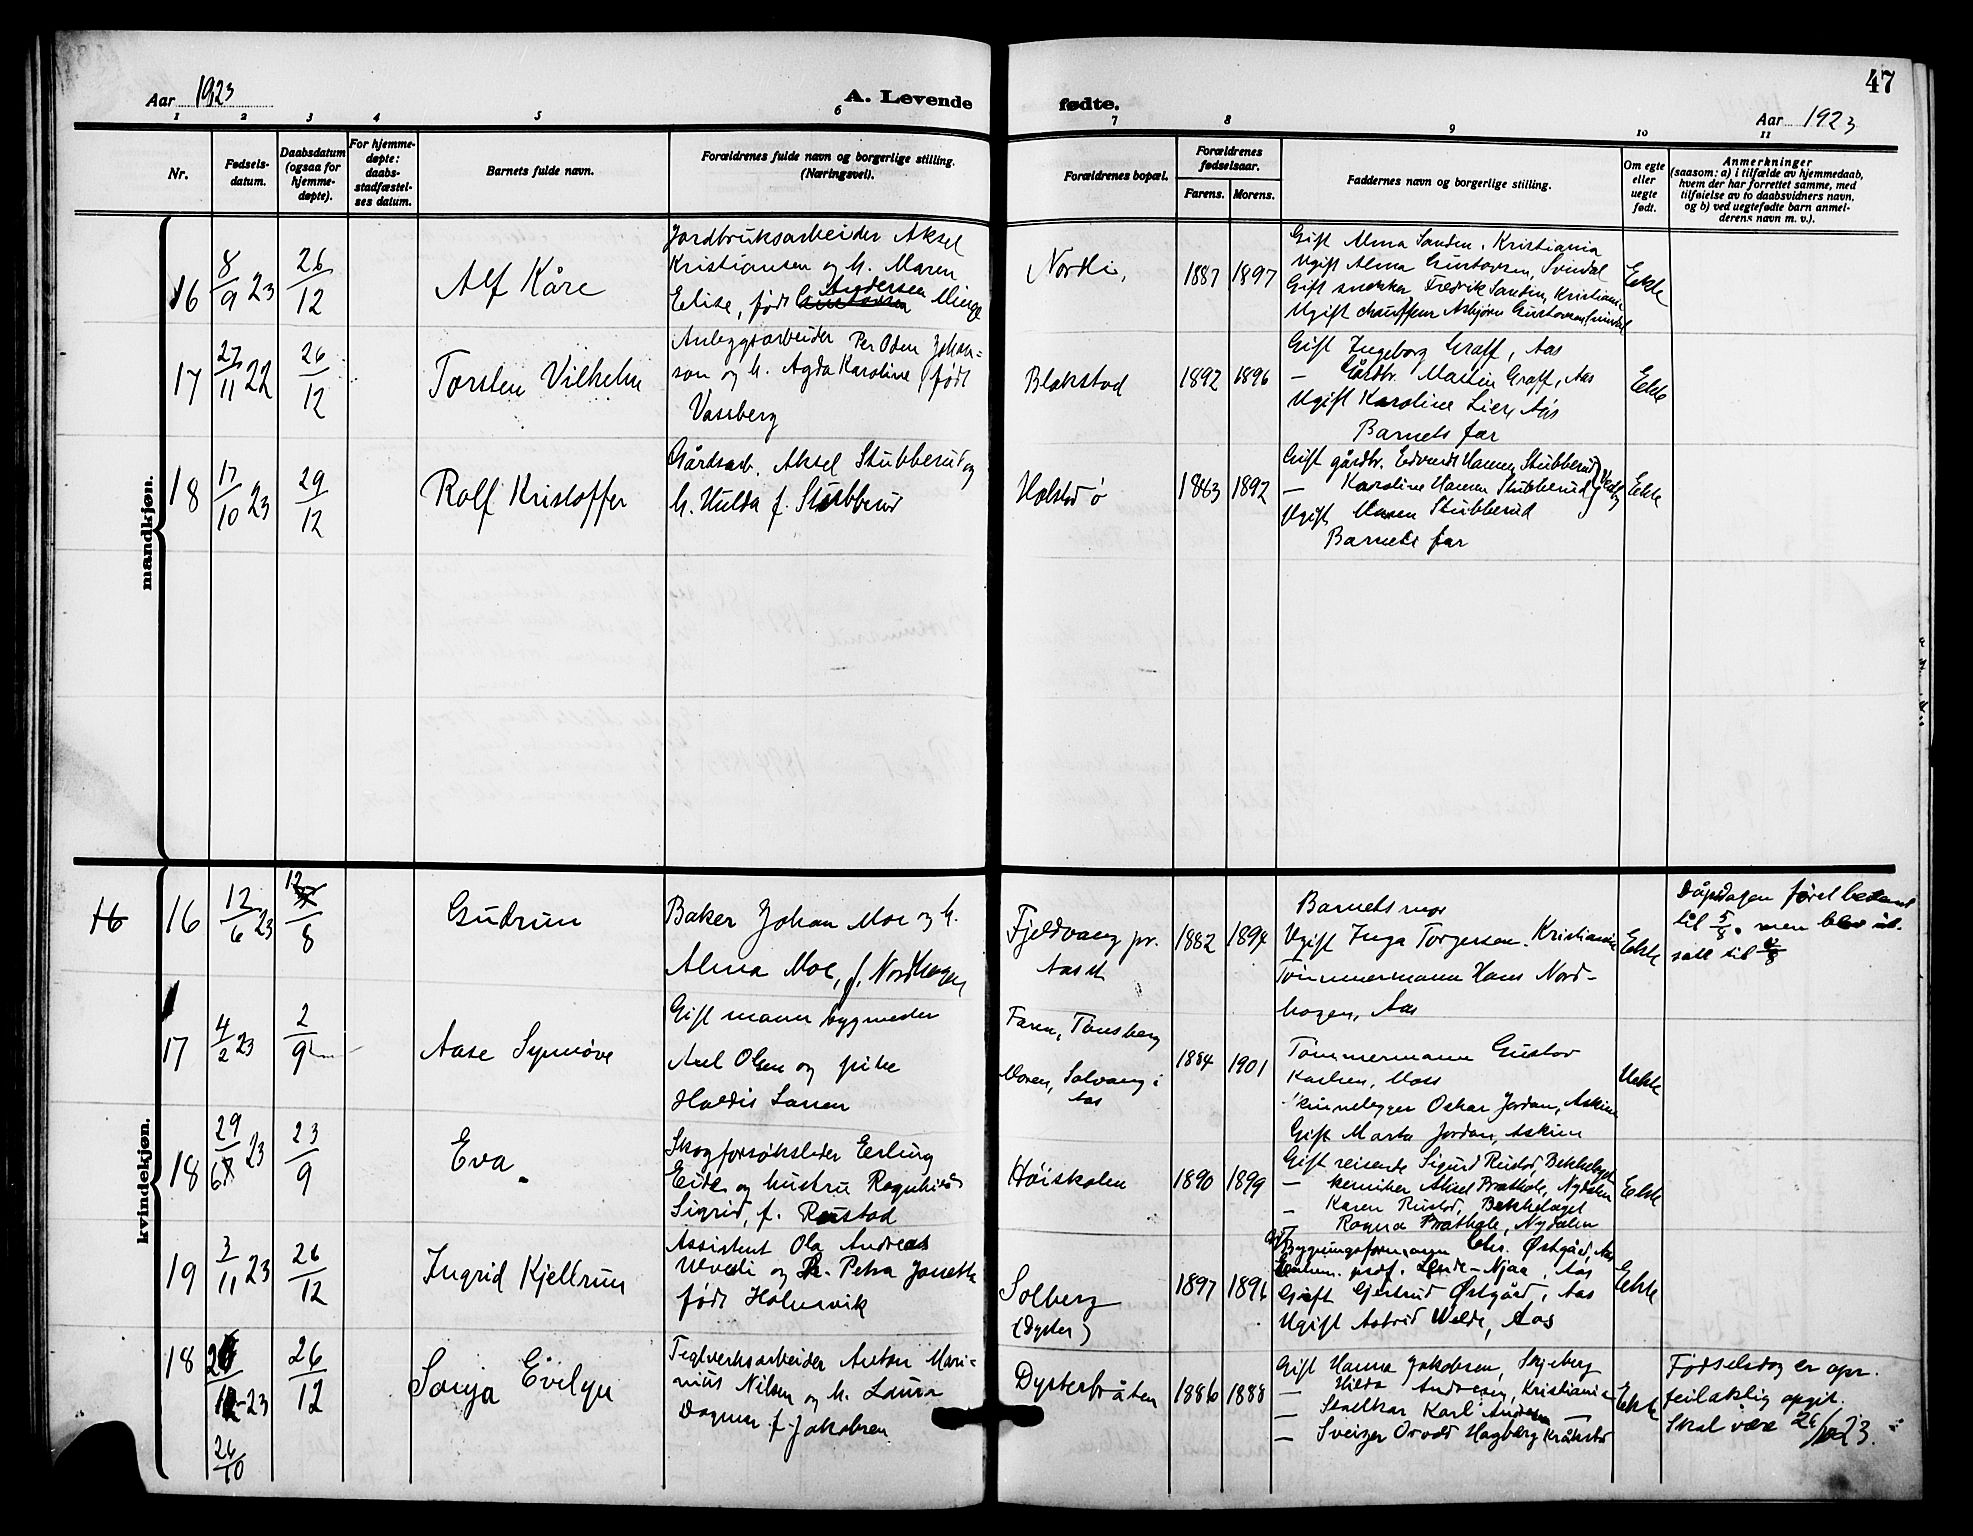 47
Aar 1923
A. Levende fødte.
Aar 1923
1 2 3 4 5 6 7 8 9 10 11
Nr.
Fødsels-
datum.
Daabsdatum
(ogsaa for
hjemme-
døpte).
For hjemme-
døpte:
daabs-
stadfæstel-
ses datum.
Barnets fulde navn.
Forældrenes fulde navn og borgerlige stilling.
(Næringsvei).
Forældrenes bopæl.
Forældrenes
fødselsaar.
Farens. Morens.
Faddernes navn og borgerlige stilling.
Om egte
eller
uegte
født.
Anmerkninger
(saasom: a) i tilfælde av hjemmedaab,
hvem der har forrettet samme, med
tilføielse av to daabsvidners navn,
og b) ved uegtefødte barn anmel-
derens navn m. v.).
mandkjøn.
16
8/9 23
26/12
Alf Kåre
Jordbruksarbeider Aksel
Kristiansen og h. Maren
Elise, født Gustavsen Andersen Minge
Nordli,
1887 1897
Gift Alma Sanden, Kristiania
Ugift Alma Gustavsen, Svindal
Gift snekker Fredrik Sanden, Kristiania
Ugift chauffeur Asbjørn Gustavsen, Svindal
Ekte
17
27/11 22
26/12
Torsten Vilhelm
Anleggsarbeider Per Oden Johan-
son og h. Agda Karoline, født
Vassberg
Blakstad
1892 1896
Gift Ingeborg Graff, Aas
— Gårdbr. Martin Graff, Aas
Ugift Karoline Lier, Aas
Barnets far
Ekte
18
17/10 23
29/12
Rolf Kristoffer
Gårdsarb. Aksel Stubberud og
h. Hulda f. Stubberud
Holstad ø
1883 1892
Gift gårdbr. Edvardt Hansen Stubberud
— Karoline Hansen Stubberud } Vestby
Ugift Maren Stubberud
Barnets far
Ekte
kvindekjøn.
16
16
12/6 23
12/8
Gudrun
Baker Johan Moe og h.
Alma Moe, f. Nordhagen
Fjeldvang pr.
Aas st
1882 1894
Barnets mor
Ugift Inga Torgersen, Kristiania
Tømmermann Hans Nord-
hagen, Aas
Ekte
Dåpsdagen først bestemt
til 5/8, men blev ut-
satt til 12/8
17
4/2 23
2/9
Aase Synnøve
Gift mann bygmester
Axel Olsen og pike
Haldis Larsen
Faren, Tønsberg
Moren, Solvang i
Aas
1884 1901
Tømmermann Gustav
Karlsen, Moss
Skinnelegger Oskar Jordan, Askim
Gift Marta Jordan, Askim
Uekte
18
29/6 23
23/9
Eva
Skogforsøksleder Erling
Eide og hustru Ragnhild
Sigrid, f. Rustad
Høiskolen
1890 1899
Gift reisende Sigurd Rustad, Bekkelaget
— kemiker Aksel Brathole, Nydalen
— Karen Rustad, Bekkelaget
Ragna Brathole, Nydalen
Ekte
19
3/11 23
26/12
Ingrid Kjellrun
Assistent Ola Andreas
Ulvedi og h. Petra Janette
født Holmsvik
Solberg
(Dyster)
1897 1896
Gift Bygningsformann Chr. Østgård, Aas
prof. Lende-Njaa, Aas
Gift Gjertrud Østgård, Aas
Ugift Astrid Welde, Aas
Ekte
18
26/12 23
26/10
26/12
Sonja Evelyn
Teglverksarbeider Anton Mari-
nius Nilsen og h. Laura
Dagmar f. Jakobsen
Dysterbråten
1886 1888
Gift Hanna Jakobsen, Skjeberg
— Hilda Andresen, Kristiania
— Stallkar Karl Andresen —
— Sveizer Orvald Hagberg, Kråkstad
Ekte
Fødselsdag er opr.
feilaktig opgit.
Skal være 26/10 23.